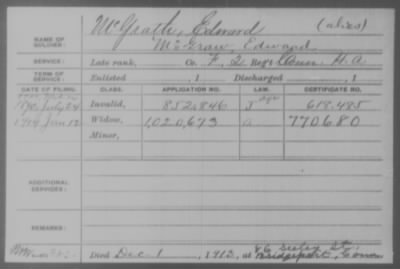 McGrath, Edward (alias)
NAME OF SOLDIER: McGraw, Edward
SERVICE: Late rank, Co. F, 2 Reg't Conn H. A.
TERM OF SERVICE: Enlisted , 1 Discharged , 1
DATE OF FILING. CLASS. APPLICATION NO. LAW. CERTIFICATE NO.
1890 July 24 Invalid, 852,846 J 618.485
1914 Jan 12 Widow, 1,020,673 770680
Minor,
ADDITIONAL SERVICES:
REMARKS:
Died Dec. 1, 1913, at 86 Seeley St.,
Bridgeport, Conn